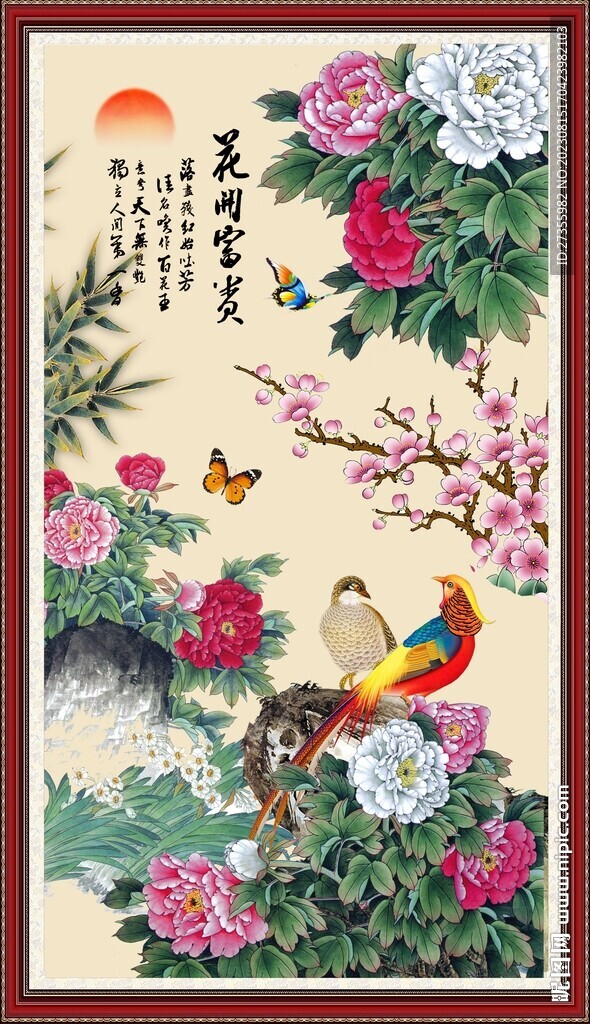 花開富貴
落盡殘紅始吐芳
佳名喚作百花王
竞夸天下無雙艷
獨立人間第一香
ID:27355982 NO:20230815170423982103
昵图网 www.nipic.com